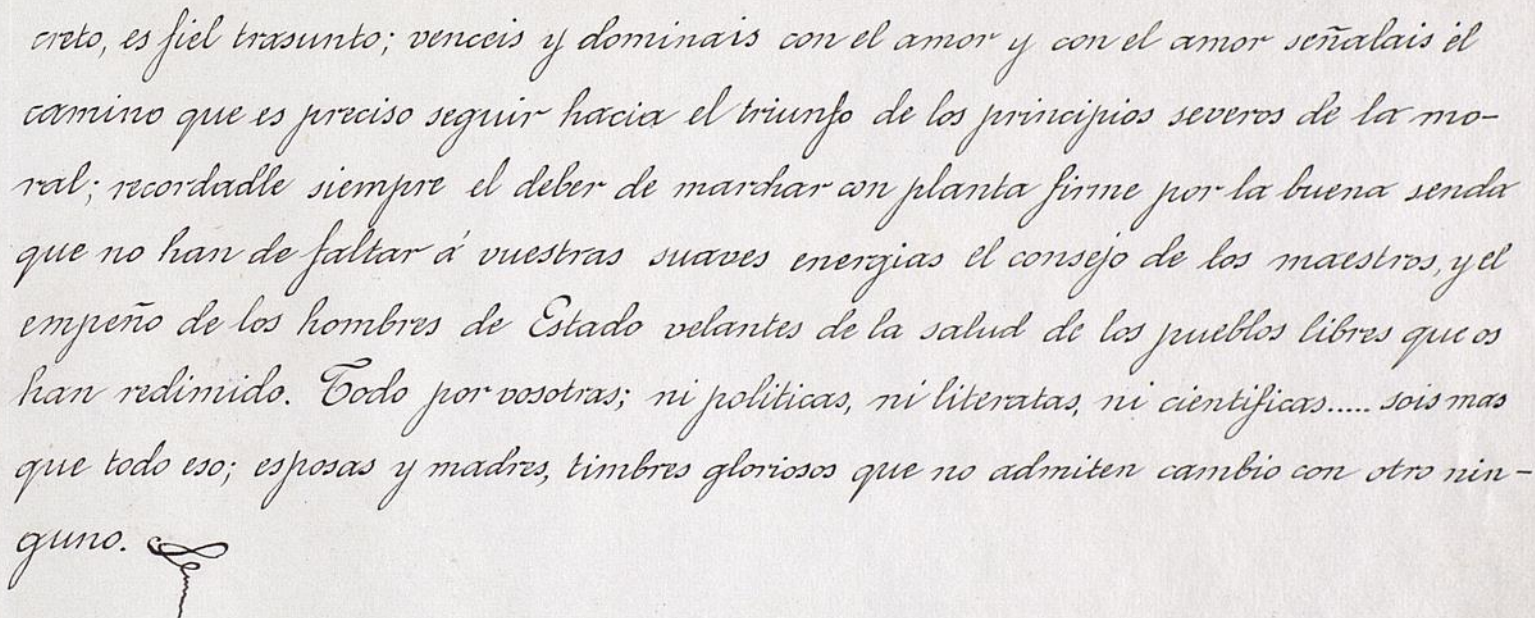 creto, es fiel trasunto; venceis y dominais con el amor y con el amor señalais el
camino que es preciso seguir hacia el triunfo de los principios severos de la mo-
ral; recordadle siempre el deber de marchar con planta firme por la buena senda
que no han de faltar á vuestras suaves energias el consejo de los maestros, y el
empeño de los hombres de Estado velantes de la salud de los pueblos libres que os
han redimido. Todo por vosotras; ni politicas, ni literatas, ni cientificas..... sois mas
que todo eso; esposas y madres, timbres gloriosos que no admiten cambio con otro nin-
guno.